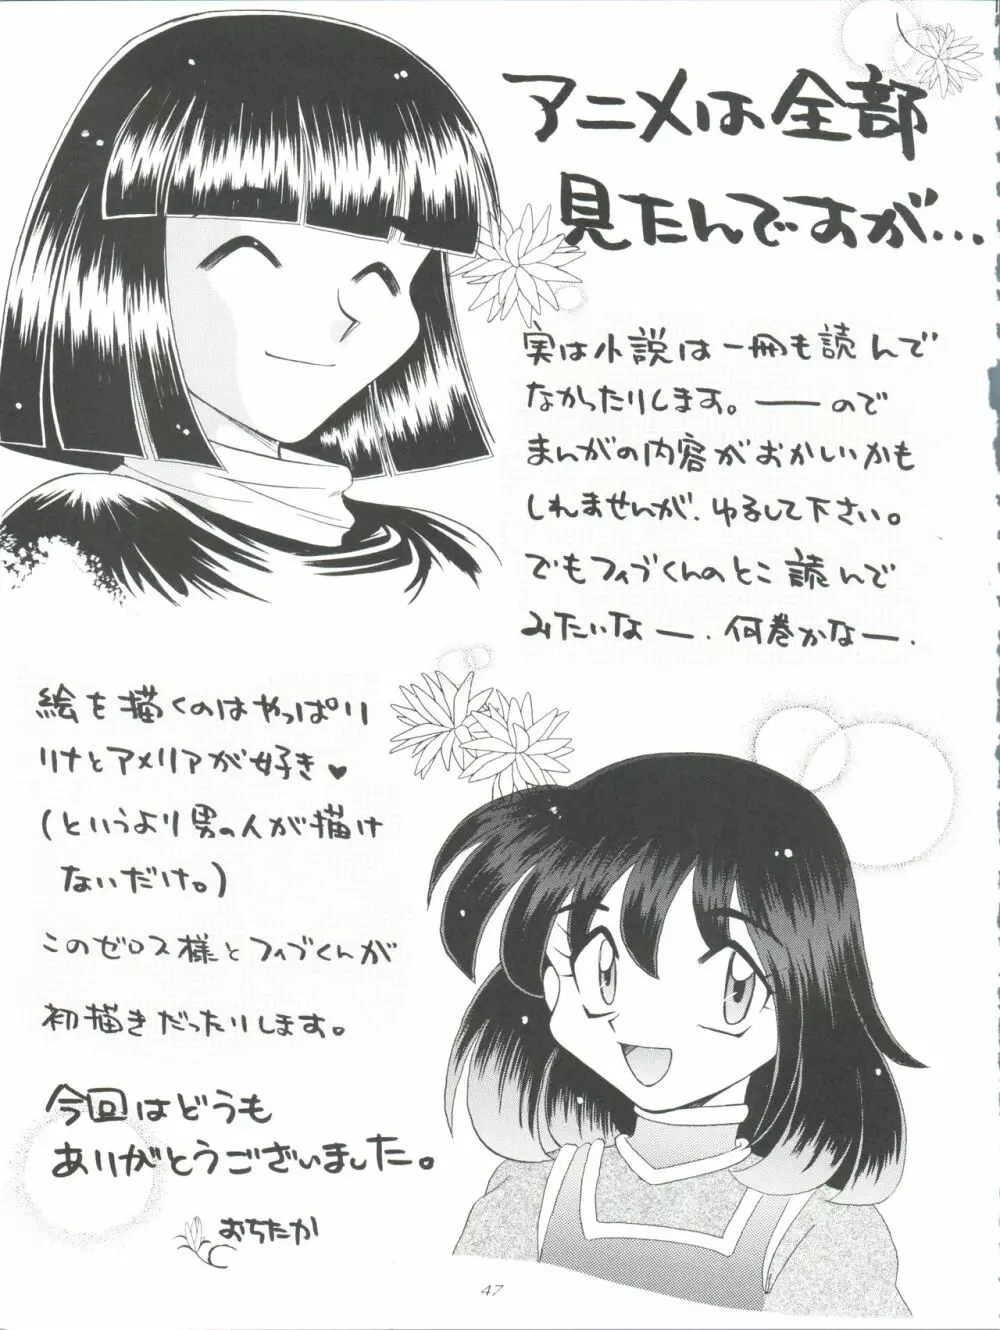 アニメは全部
見たんですが…
実は小説は一冊も読んで
なかったりします。——ので
まんがの内容がおかしいかも
しれませんが、ゆるして下さい。
でもフィブくんのとこ読んで
みたいなー、何巻かなー、
絵を描くのはやっぱり
リナとアメリアが好き♥
(というより男の人が描け
ないだけ。)
このゼロス様とフィブくんが
初描きだったりします。
今回はどうも
ありがとうございました。
おちたか
47